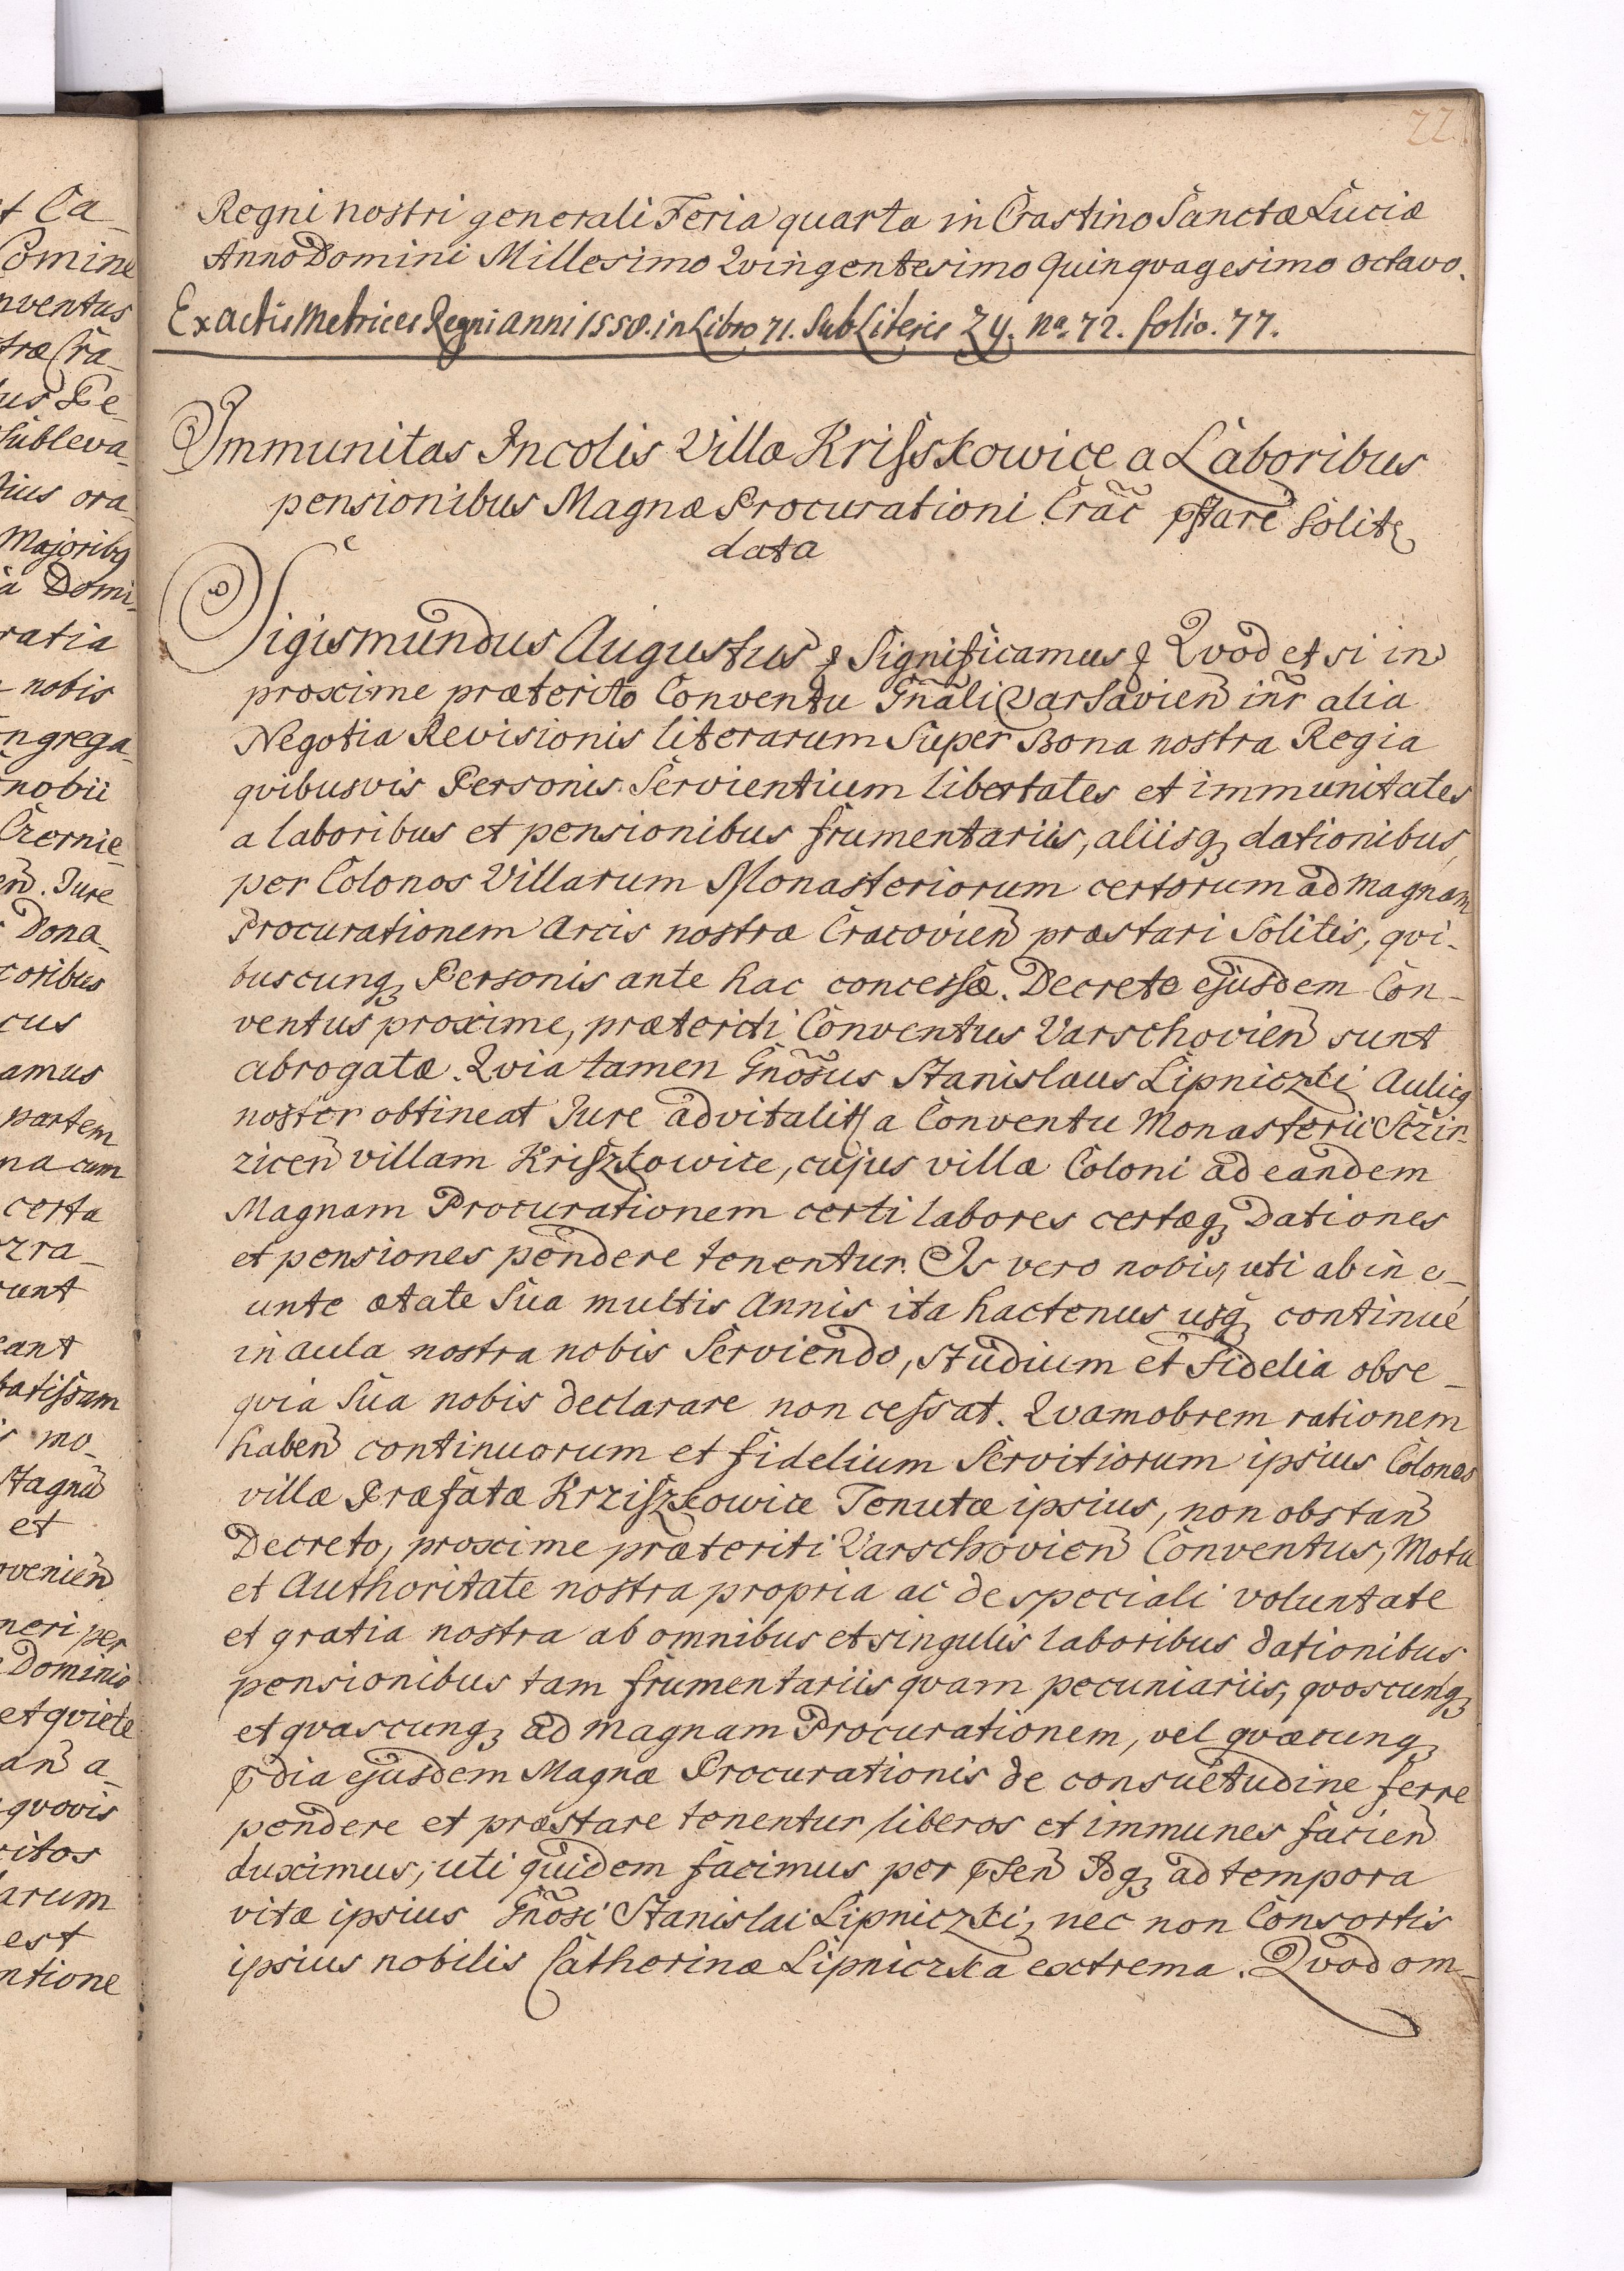 22.
Regni nostri generali Feria quarta in Crastino Sanctæ Luciæ
Anno Domini Millesimo Qvingentesimo Quinqvagesimo octavo.
Ex actis Metrices Regni anni 1558. in Libro 71. Sub Literis ZY. no. 72. folio. 77.
Immunitas Incolis Villæ Krisskowice a Laboribus
pensionibus Magnæ Procurationi Crac̃ p̃stare Solitę
data
Sigismundus Augustus ꝛ Significamus ꝛ Qvod et si in
proxime præterito Conventu Gñali Varsavien̄ inr̃ alia
Negotia Revisionis literarum Super Bona nostra Regia
qvibusvis Personis Servientium libertates et immunitates
a laboribus et pensionibus frumentariis, aliisq3 dationibus,
per Colonos Villarum Monasteriorum certorum ad magnam
Procurationem Arcis nostræ Cracovien̄ præstari Solitis, qvi-
buscunq3 Personis ante hac concessæ. Decreto ejusdem Con-
ventus proxime, præteriti Conventus Varschovien̄ sunt
abrogatæ. Qvia tamen Gñosus Stanislaus Lipniczki Aulicꝯ
noster obtineat Jure advitalit̃ a Conventu Monasterii Sczir-
zicen̄ villam Kriszkowice, cujus villæ Coloni ad eandem
Magnam Procurationem certi labores certæq3 Dationes
et pensiones pendere tenentur. Is vero nobis, uti ab in e-
unte ætate Sua multis Annis ita hactenus usq3 continué
in aula nostra nobis Serviendo, studium et fidelia obse-
qvia Sua nobis declarare non cessat. Qvamobrem rationem
haben̄ continuorum et fidelium Servitiorum ipsius Colonos
villæ Præfatæ Krziszkowice Tenutæ ipsius, non obstan̄
Decreto, proxime præteriti Varschovien̄ Conventus, Motu
et Authoritate nostra propria ac de speciali voluntate
et gratia nostra ab omnibus et singulis laboribus dationibus
pensionibus tam frumentariis qvam pecuniariis, qvoscunq3
et qvascunq3 ad magnam Procurationem, vel qvæcunq3
p̃dia ejusdem Magnæ Procurationis de consuetudine ferre
pendere et præstare tenentur liberos et immunes facien̄
duximus, uti quidem facimus per p̃sen̄ Idq3 ad tempora
vitæ ipsius Gñosi Stanislai Lipniczki, nec non Consortis
ipsius nobilis Catherinæ Lipniczka extrema. Qvod om-